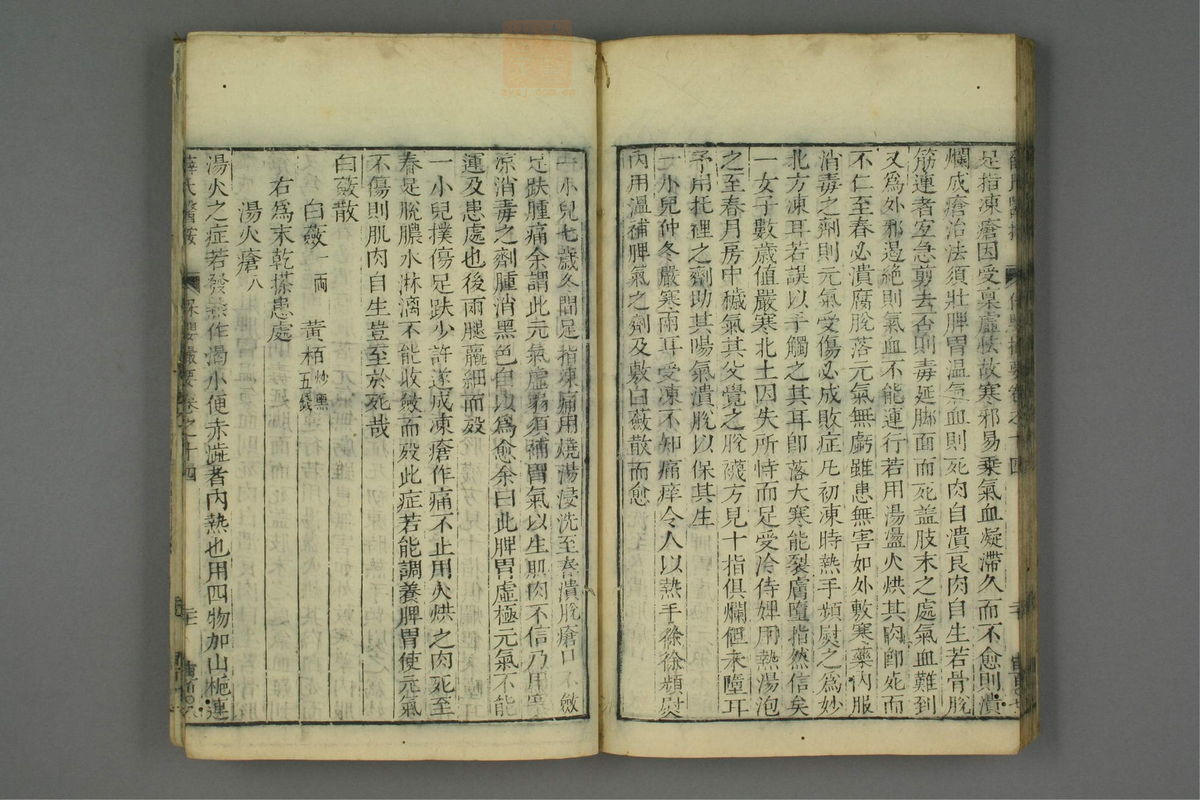 足指凍瘡因受稟虛怯故寒邪易乗氣血凝滯久而不愈則潰
爛成瘡治法須壯脾胃温氣血則死肉自潰良肉自生若骨脫
筋連者宜急剪去否則毒延脚面而死益肢末之處氣血難到
又爲外邪遏絶則氣血不能運行若用湯盪火烘其肉卽死而
不仁至春必潰腐脫落元氣無虧雖患無害如外敷寒藥內服
消毒之劑則元氣受傷必成敗症凡初凍時熱手頻熨之爲妙
北方凍耳若誤以手觸之其耳卽落大寒能裂膚墮指然信矣
一女子數歲值嚴寒北上因失所恃而足受冷侍婢用熱湯泡
之至春月房中穢氣其父覺之脫襪方見十指俱爛但未墮耳
予用托裡之劑助其陽氣潰脫以保其生
一小兒仲冬嚴寒兩耳受凍不知痛痒令人以熱手徐徐頻熨
內用溫補脾氣之劑及敷白蘞散而愈
一小兒七歲久間足指凍痛用燒湯浸洗至春潰脫瘡口不斂
足趺腫痛余謂此元氣虛弱須補胃氣以生肌肉不信乃用寒
凉消毒之劑腫消黑色自以爲愈余曰此脾胃虛極元氣不能
運及患處也後兩腿龘細而歿
一小兒撲傷足趺少許遂成凍瘡作痛不止用火烘之肉死至
春足脫膿水淋漓不能收斂而歿此症若能調養脾胃使元氣
不傷則肌肉自生豈至於死哉
白蘞散
白蘞一兩 黃栢炒黑五錢
右爲末乾搽患處
湯火瘡八
湯火之症若發熱作渴小便赤澁者內熱也用四物加山梔連
薛氏醫按 保嬰撮要卷之十四